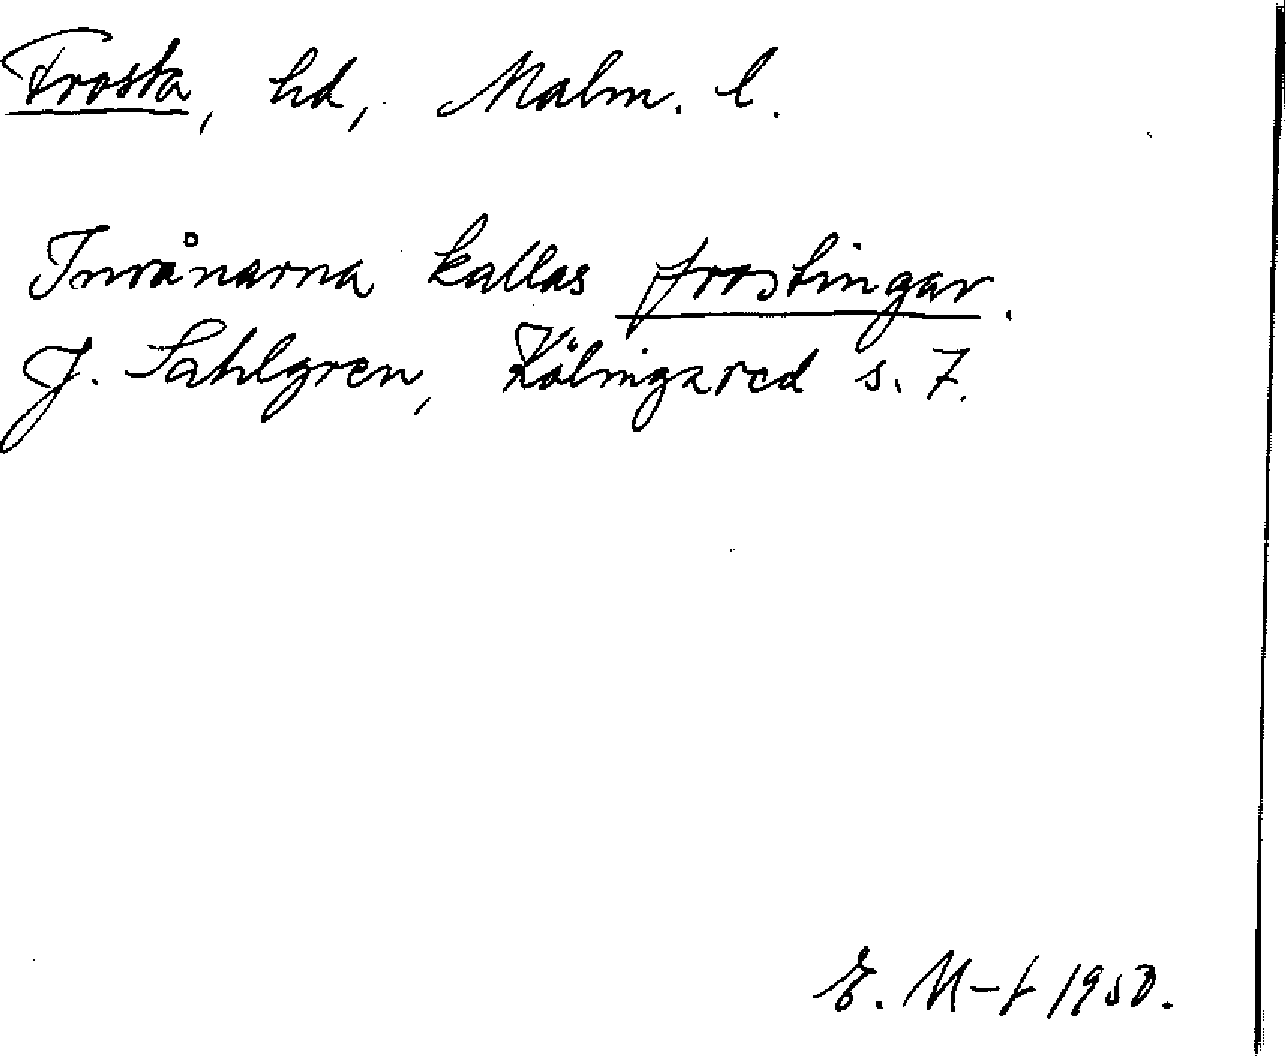 Frosta, hd, Malm. l.
Invånarna kallas frostingar.
J. Sahlgren, Kölingared s. 7.
E. M-t 1950.